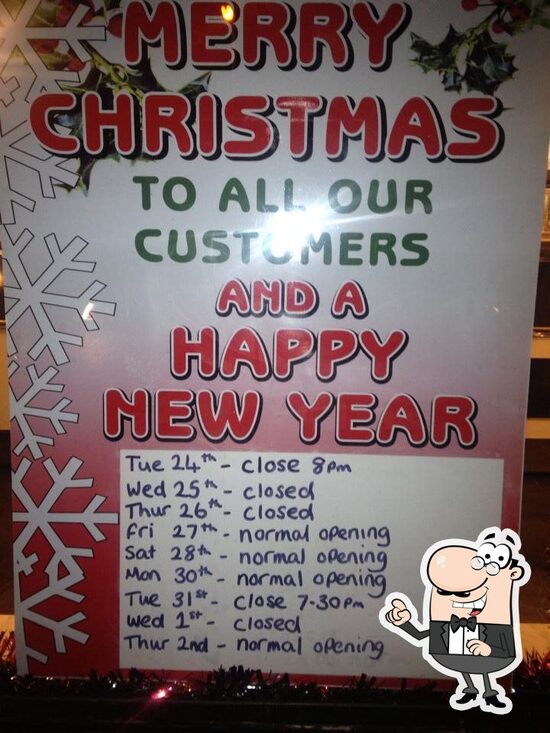 MERRY
CHRISTMAS
TO ALL OUR
CUSTOMERS
AND A
HAPPY
NEW YEAR
Tue 24th - close 8pm
Wed 25th - closed
Thur 26th - closed
Fri 27th - normal opening
Sat 28th - normal opening
Mon 30th - normal opening
Tue 31st - close 7-30pm
Wed 1st - closed
Thur 2nd - normal opening